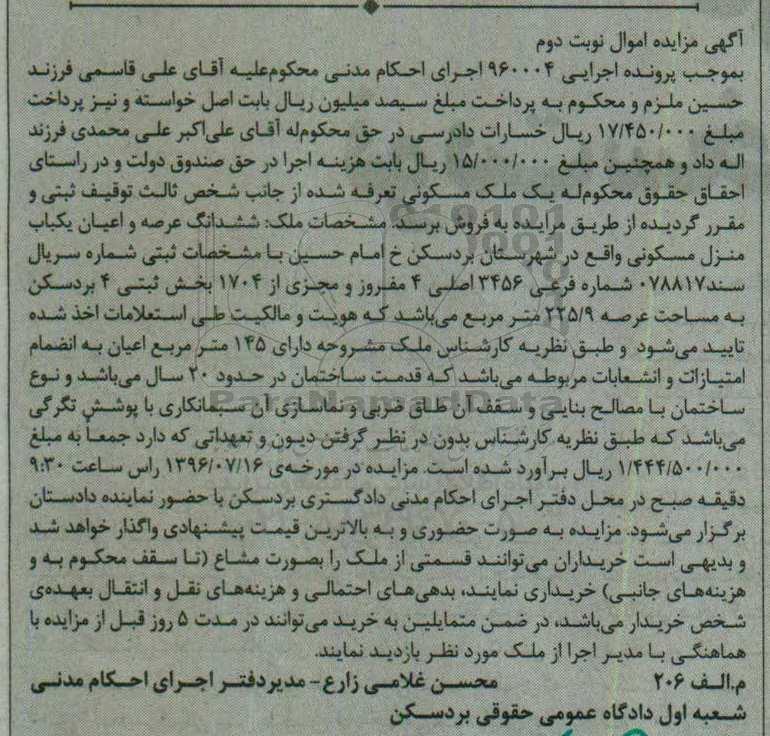 آگهی مزایده اموال نوبت دوم
بموجب پرونده اجرایی ۹۶۰۰۰۴ اجرای احکام مدنی محکوم‌علیه آقای علی قاسمی فرزند
حسین ملزم و محکوم به پرداخت مبلغ سیصد میلیون ریال بابت اصل خواسته و نیز پرداخت
مبلغ ۱۷/۴۵۰/۰۰۰ ریال خسارات دادرسی در حق محکوم‌له آقای علی‌اکبر علی محمدی فرزند
اله داد و همچنین مبلغ ۱۵/۰۰۰/۰۰۰ ریال بابت هزینه اجرا در حق صندوق دولت و در راستای
احقاق حقوق محکوم‌له یک ملک مسکونی تعرفه شده از جانب شخص ثالث توقیف ثبتی و
مقرر گردیده از طریق مزایده به فروش برسد. مشخصات ملک: ششدانگ عرصه و اعیان یکباب
منزل مسکونی واقع در شهرستان بردسکن خ امام حسین با مشخصات ثبتی شماره سریال
سند۰۷۸۸۱۷ شماره فرعی ۳۴۵۶ اصلی ۴ مفروز و مجزی از ۱۷۰۴ بخش ثبتی ۴ بردسکن
به مساحت عرصه ۲۲۵/۹ متر مربع می‌باشد که هویت و مالکیت طی استعلامات اخذ شده
تایید می‌شود و طبق نظریه کارشناس ملک مشروحه دارای ۱۴۵ متر مربع اعیان به انضمام
امتیازات و انشعابات مربوطه می‌باشد که قدمت ساختمان در حدود ۲۰ سال می‌باشد و نوع
ساختمان با مصالح بنایی و سقف آن طاق ضربی و نماسازی آن سیمانکاری با پوشش تگرگی
می‌باشد که طبق نظریه کارشناس بدون در نظر گرفتن دیون و تعهداتی که دارد جمعاً به مبلغ
۱/۴۴۴/۵۰۰/۰۰۰ ریال برآورد شده است. مزایده در مورخه‌ی ۱۳۹۶/۰۷/۱۶ راس ساعت ۹:۳۰
دقیقه صبح در محل دفتر اجرای احکام مدنی دادگستری بردسکن با حضور نماینده دادستان
برگزار می‌شود. مزایده به صورت حضوری و به بالاترین قیمت پیشنهادی واگذار خواهد شد
و بدیهی است خریداران می‌توانند قسمتی از ملک را بصورت مشاع (تا سقف محکوم به و
هزینه‌های جانبی) خریداری نمایند، بدهی‌های احتمالی و هزینه‌های نقل و انتقال بعهده‌ی
شخص خریدار می‌باشد، در ضمن متمایلین به خرید می‌توانند در مدت ۵ روز قبل از مزایده با
هماهنگی با مدیر اجرا از ملک مورد نظر بازدید نمایند.
م.الف ۲۰۶ محسن غلامی زارع - مدیردفتر اجرای احکام مدنی
شعبه اول دادگاه عمومی حقوقی بردسکن
ParsNamadData